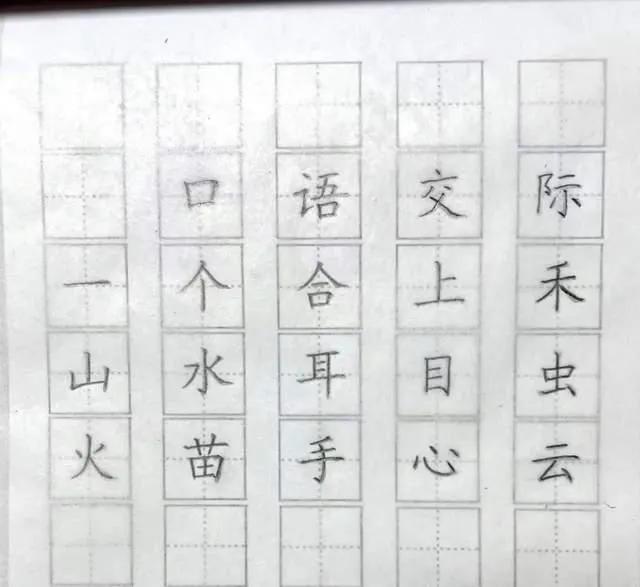 口语交际
一个合上禾
山水耳目虫
火苗手心云